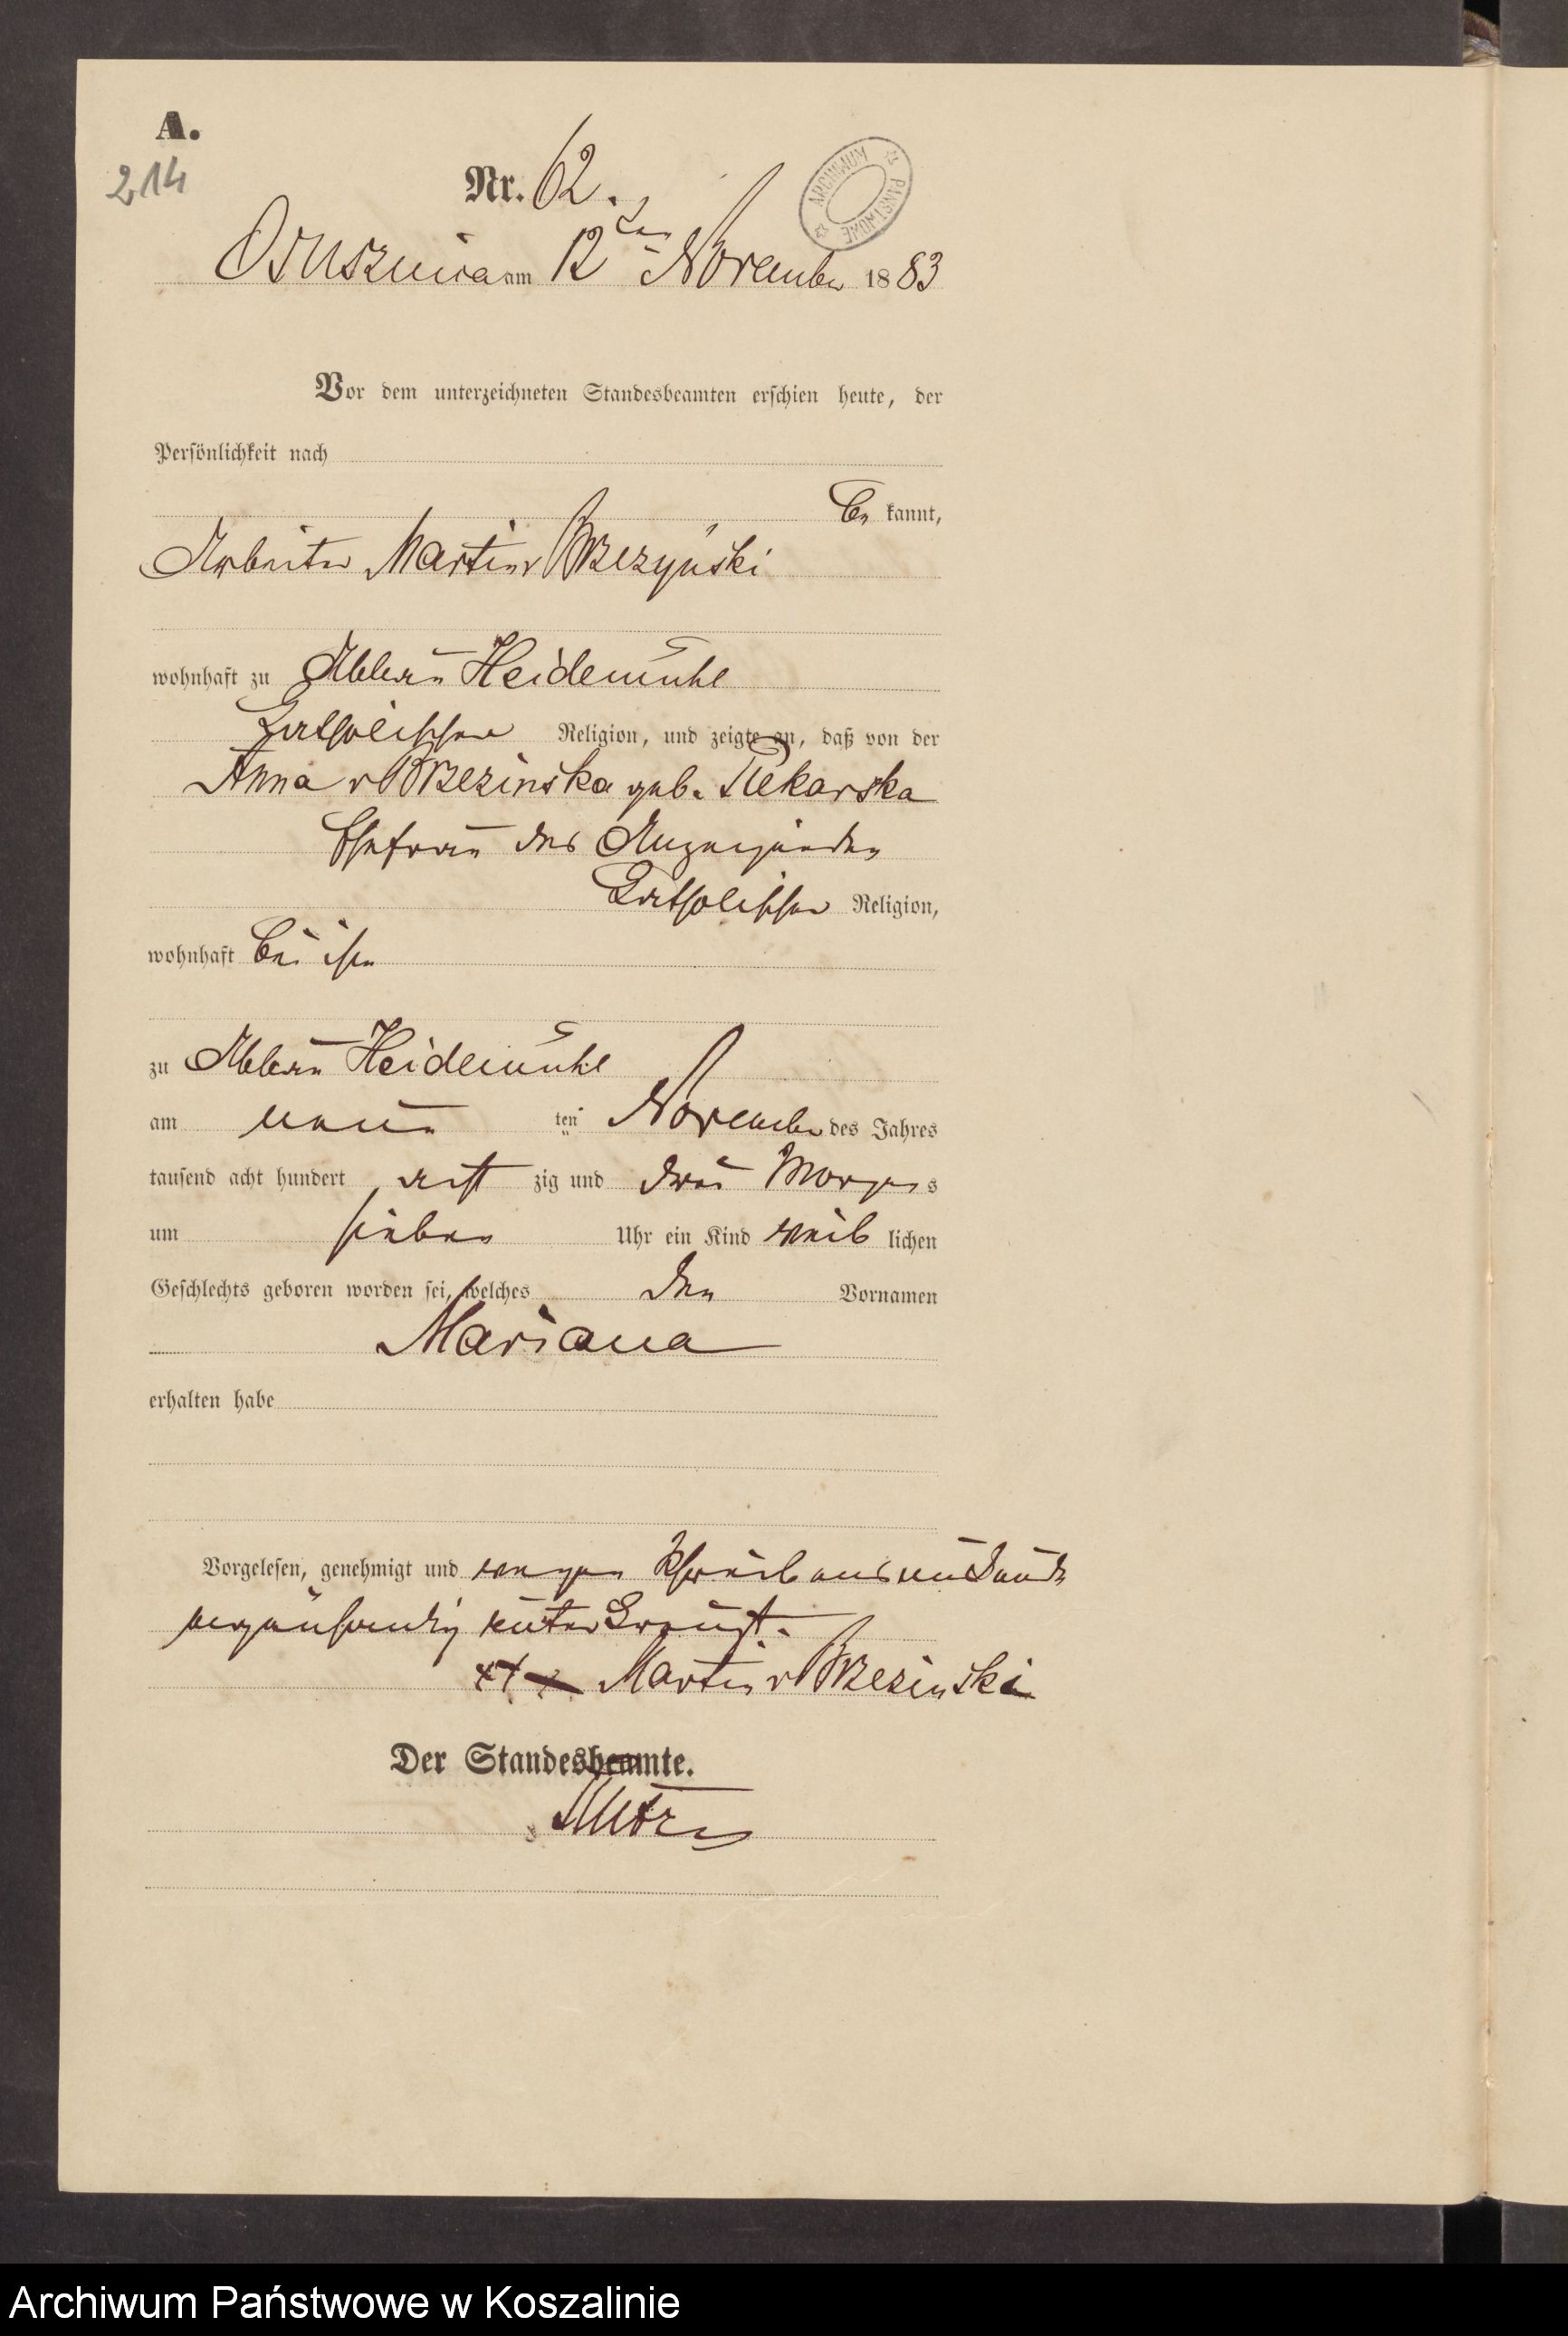 A.
214
Nr. 62.
ARCHIWUM PAŃSTWOWE
Osuszniza am 12ten November 1883
Vor dem unterzeichneten Standesbeamten erschien heute, der
Persönlichkeit nach
be kannt,
Arbeiter Martin v Brzezyński
wohnhaft zu Abbau Heidemühl
katholischer Religion, und zeigte an, daß von der
Anna v Brzezinska geb. Piekarska
Ehefrau des Anzeigenden
katholischer Religion,
wohnhaft bei ihm
zu Abbau Heidemühl
am neun ten November des Jahres
tausend acht hundert acht zig und drei Morgens
um sieben Uhr ein Kind weib lichen
Geschlechts geboren worden sei, welches den Vornamen
Mariana
erhalten habe
Vorgelesen, genehmigt und wegen Schreibensunkunde
unterkreuzt.
xxx Martin v Brzezinski
Der Standesbeamte.
Archiwum Państwowe w Koszalinie